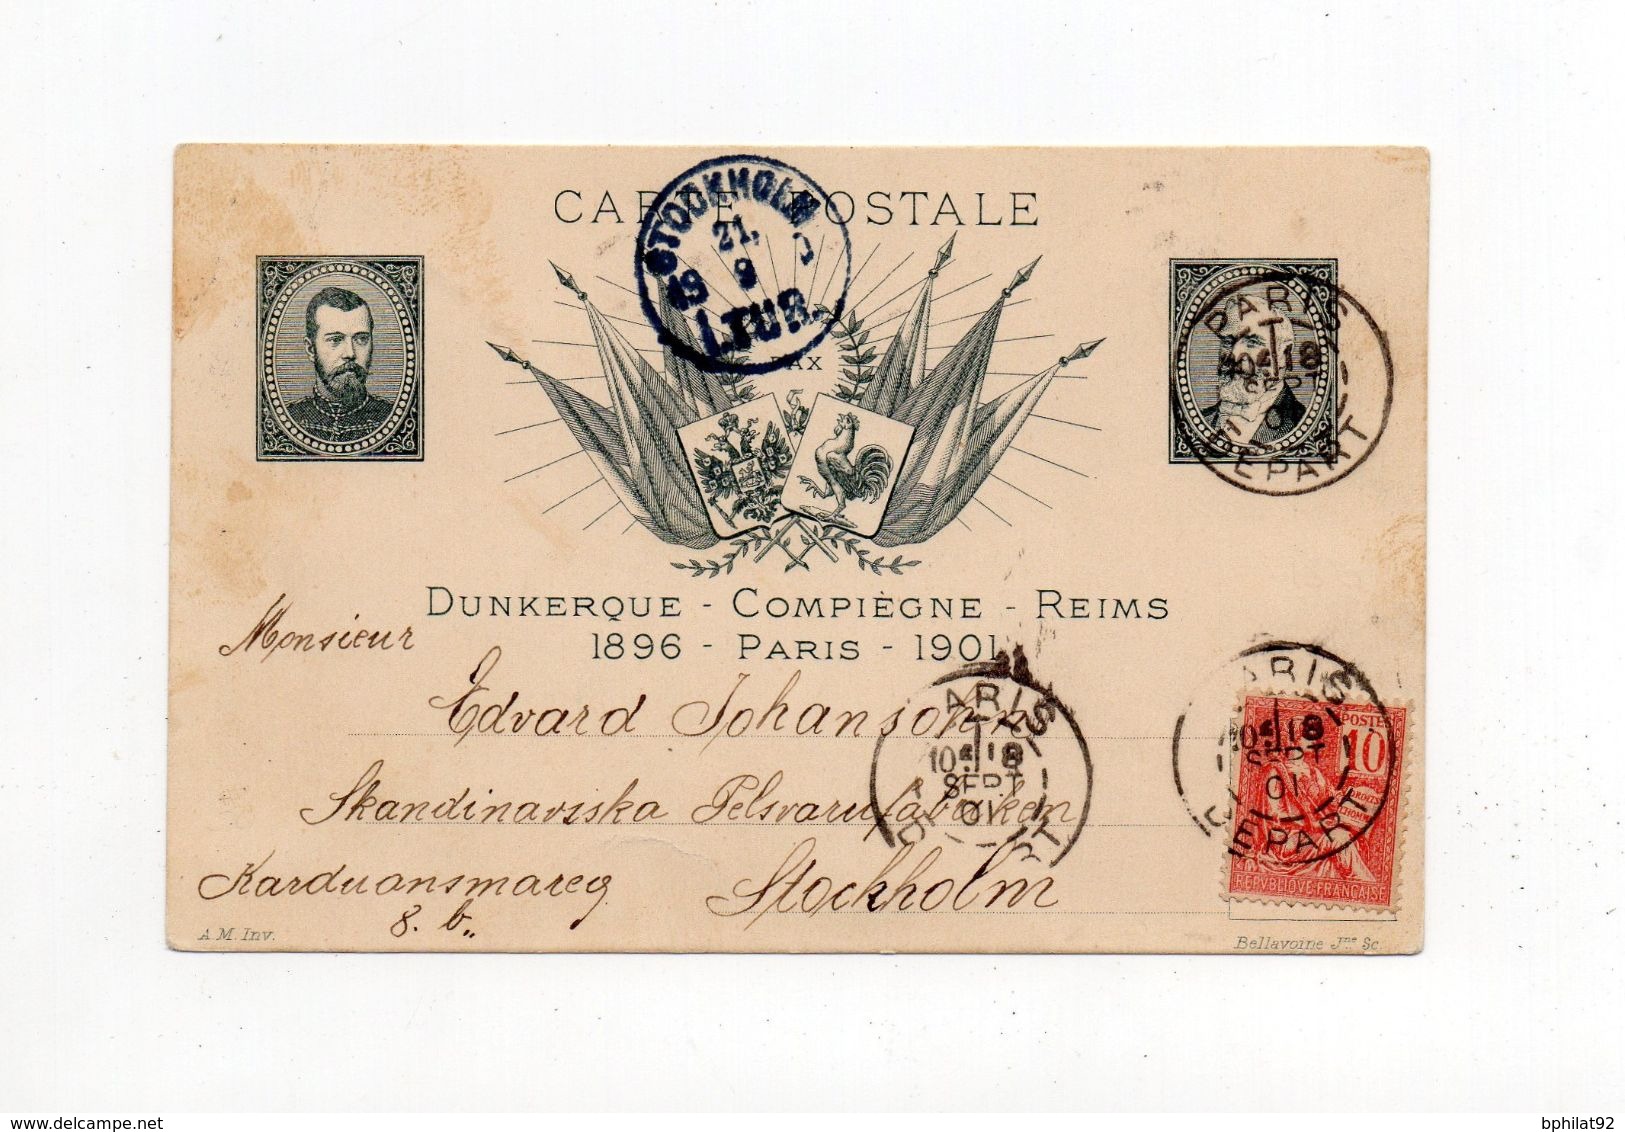 CARTE POSTALE
STOCKHOLM
21.
19 9
1.TUR.
PAX
PARIS
10E 18
SEPT
01
DEPART
DUNKERQUE - COMPIÈGNE - REIMS
1896 - PARIS - 1901
Monsieur
Edvard Johansohn
PARIS
10E 18
SEPT
01
DEPART
PARIS
10E 18
SEPT
01
DEPART
POSTES
10
REPVBLIQVE FRANÇAISE
Skandinaviska Pelsvarufabriken
Karduansmareg
8. b.
Stockholm
A. M. Inv.
Bellavoine Jne Sc.
delcampe.net
bphilat92